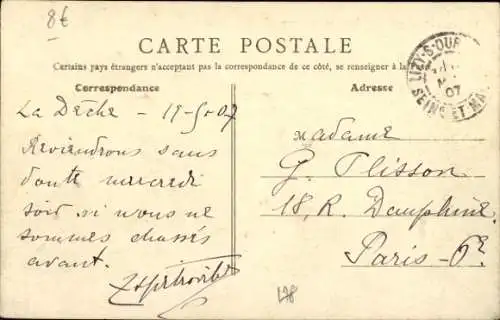 8€
CARTE POSTALE
Certains pays étrangers n'acceptant pas la correspondance de ce côté, se renseigner à la
Correspondance
Adresse
LIZY-S-OURCQ
07
SEINE ET MA
La Dèche - 19-5-07
Reviendrons sans
doute mercredi
soit si nous ne
sommes chassés
avant.
Madame
G. Plisson
18, R. Dauphine
Paris - 6e